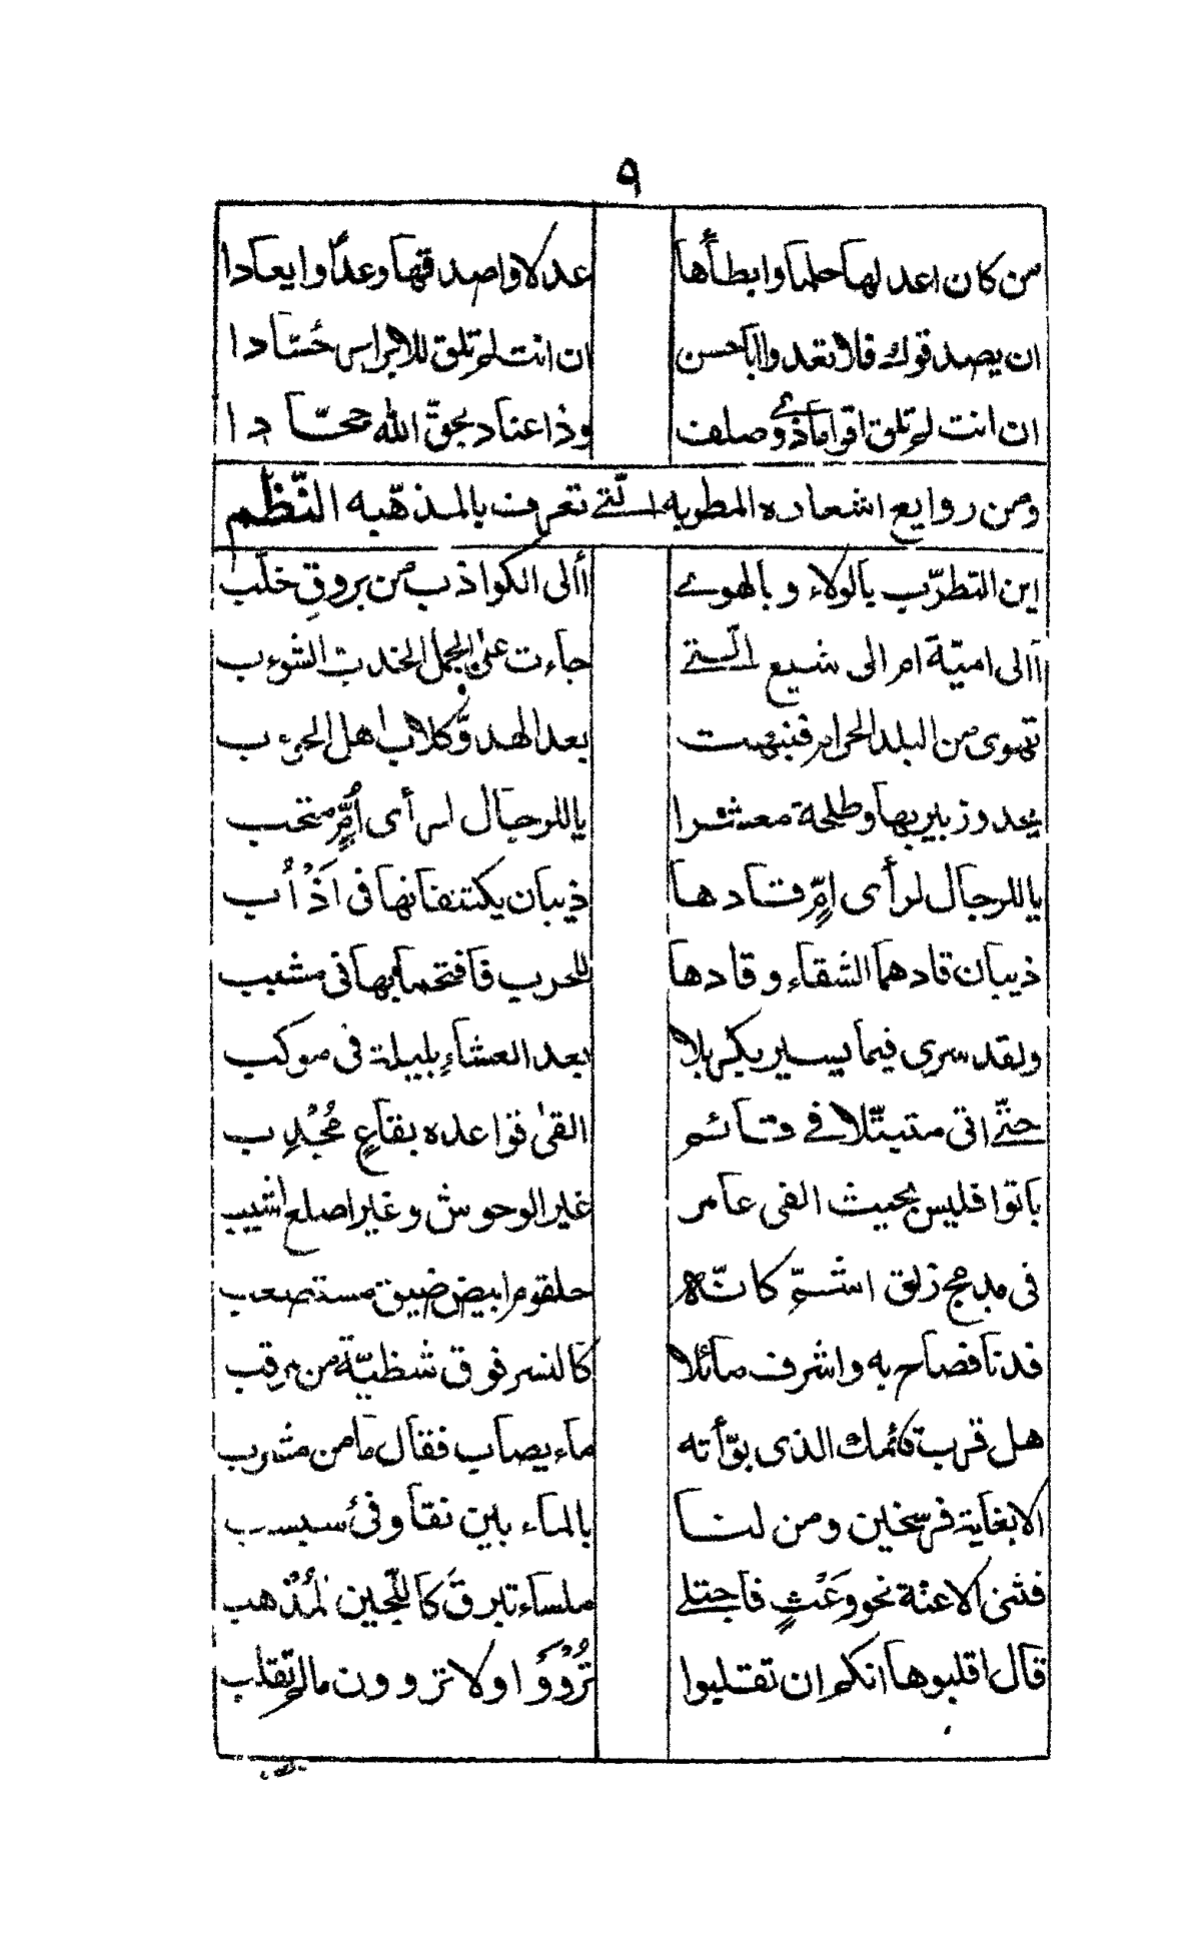 ٩
من كان اعدلها حلما وابطأها عدلا واصدقها وعدًا وايعادا
ان يصدقوك فلا تعدوا اباحسن ان انت لم تلق للابرار حُسّادا
ان انت لم تلق اقواما ذوى صلف وذا عناد بحقّ الله جحّادا
ومن روايع اشعاره المطربه الّتى تعرف بالمذهّبه النّظم
اين التطرّب بالولاء وبالهوى أالى الكواذب من بروقِ خلّب
أالى اميّة ام الى شيع الّتى جاءت على الجمل الخدب الشوءب
تهوى من البلد الحرام فنبهت بعد الهدوّ كلاب اهل الحوءب
يحدو زبير بها وطلحة معشرا ياللرجال لرأى اُمٍّ منجب
ياللرجال لرأى امٍّ قادها ذيبان يكتنفانها فى اَذْاُب
ذيبان قادهما الشقاء وقادها للحرب فاقتحما بها فى منشب
ولقد سرى فيما يسير بكربلا بعد العشاءِ بليلة فى موكب
حتّى اتى متبتّلا فى قائم القى قواعده بقاعٍ مُجْدِب
باتوا فليس بحيث الفى عامر غير الوحوش وغير اصلع اشيب
فى مدمج زلق اشمّ كانّه حلقوم ابيض ضيق مستصعب
فدنا فصاح به واشرف مائلا كالنسر فوق شظيّة من مرقب
هل قرب قائمك الذى بوّأته ماء يصاب فقال ما من مشرب
الا بغاية فرسخين ومن لنا بالماء بين نقا وفى سبسب
فثنى الاعنّة نحو وَعْثٍ فاجتلى ملساء تبرقَ كاللّجين المُذْهب
قال اقلبوها انكم ان تقلبوا تُرْوَوْا ولا تروون مالم تقلب